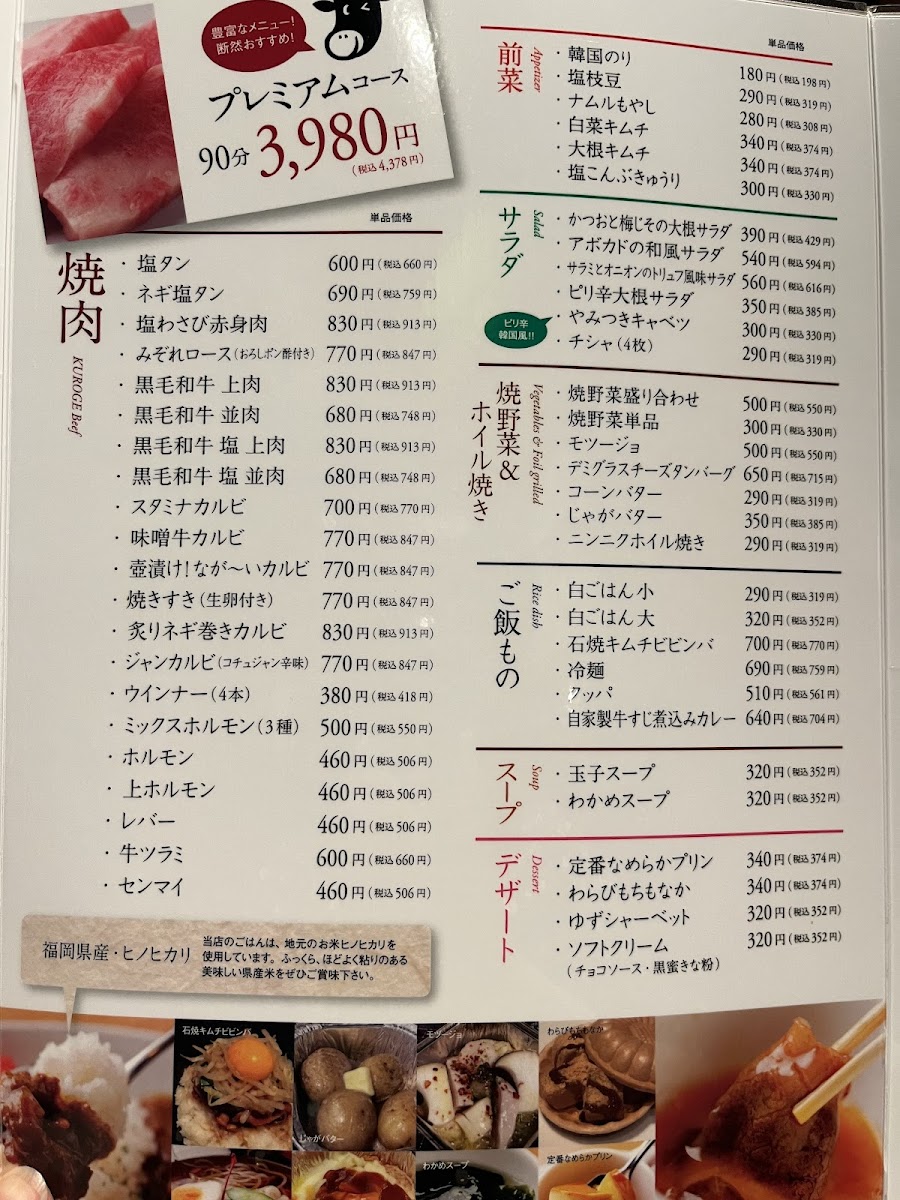 豊富なメニュー!
断然おすすめ!
プレミアムコース
90分 3,980円
(税込4,378円)
単品価格
焼肉
KUROGE Beef
・塩タン 600円(税込660円)
・ネギ塩タン 690円(税込759円)
・塩わさび赤身肉 830円(税込913円)
・みぞれロース(おろしポン酢付き) 770円(税込847円)
・黒毛和牛 上肉 830円(税込913円)
・黒毛和牛 並肉 680円(税込748円)
・黒毛和牛 塩 上肉 830円(税込913円)
・黒毛和牛 塩 並肉 680円(税込748円)
・スタミナカルビ 700円(税込770円)
・味噌牛カルビ 770円(税込847円)
・壺漬け!なが〜いカルビ 770円(税込847円)
・焼きすき(生卵付き) 770円(税込847円)
・炙りネギ巻きカルビ 830円(税込913円)
・ジャンカルビ(コチュジャン辛味) 770円(税込847円)
・ウインナー(4本) 380円(税込418円)
・ミックスホルモン(3種) 500円(税込550円)
・ホルモン 460円(税込506円)
・上ホルモン 460円(税込506円)
・レバー 460円(税込506円)
・牛ツラミ 600円(税込660円)
・センマイ 460円(税込506円)
福岡県産・ヒノヒカリ
当店のごはんは、地元のお米ヒノヒカリを
使用しています。ふっくら、ほどよく粘りのある
美味しい県産米をぜひご賞味下さい。
単品価格
前菜
Appetizer
・韓国のり 180円(税込198円)
・塩枝豆 290円(税込319円)
・ナムルもやし 280円(税込308円)
・白菜キムチ 340円(税込374円)
・大根キムチ 340円(税込374円)
・塩こんぶきゅうり 300円(税込330円)
サラダ
Salad
・かつおと梅じその大根サラダ 390円(税込429円)
・アボカドの和風サラダ 540円(税込594円)
・サラミとオニオンのトリュフ風味サラダ 560円(税込616円)
・ピリ辛大根サラダ 350円(税込385円)
ピリ辛
韓国風!!
・やみつきキャベツ 300円(税込330円)
・チシャ(4枚) 290円(税込319円)
焼野菜&
ホイル焼き
Vegetables & Foil grilled
・焼野菜盛り合わせ 500円(税込550円)
・焼野菜単品 300円(税込330円)
・モツージョ 500円(税込550円)
・デミグラスチーズタンバーグ 650円(税込715円)
・コーンバター 290円(税込319円)
・じゃがバター 350円(税込385円)
・ニンニクホイル焼き 290円(税込319円)
ご飯もの
Rice dish
・白ごはん 小 290円(税込319円)
・白ごはん 大 320円(税込352円)
・石焼キムチビビンバ 700円(税込770円)
・冷麺 690円(税込759円)
・クッパ 510円(税込561円)
・自家製牛すじ煮込みカレー 640円(税込704円)
スープ
Soup
・玉子スープ 320円(税込352円)
・わかめスープ 320円(税込352円)
デザート
Dessert
・定番なめらかプリン 340円(税込374円)
・わらびもちもなか 340円(税込374円)
・ゆずシャーベット 320円(税込352円)
・ソフトクリーム 320円(税込352円)
(チョコソース・黒蜜きな粉)
石焼キムチビビンバ
じゃがバター
モツージョ
わらびもちもなか
わかめスープ
定番なめらかプリン